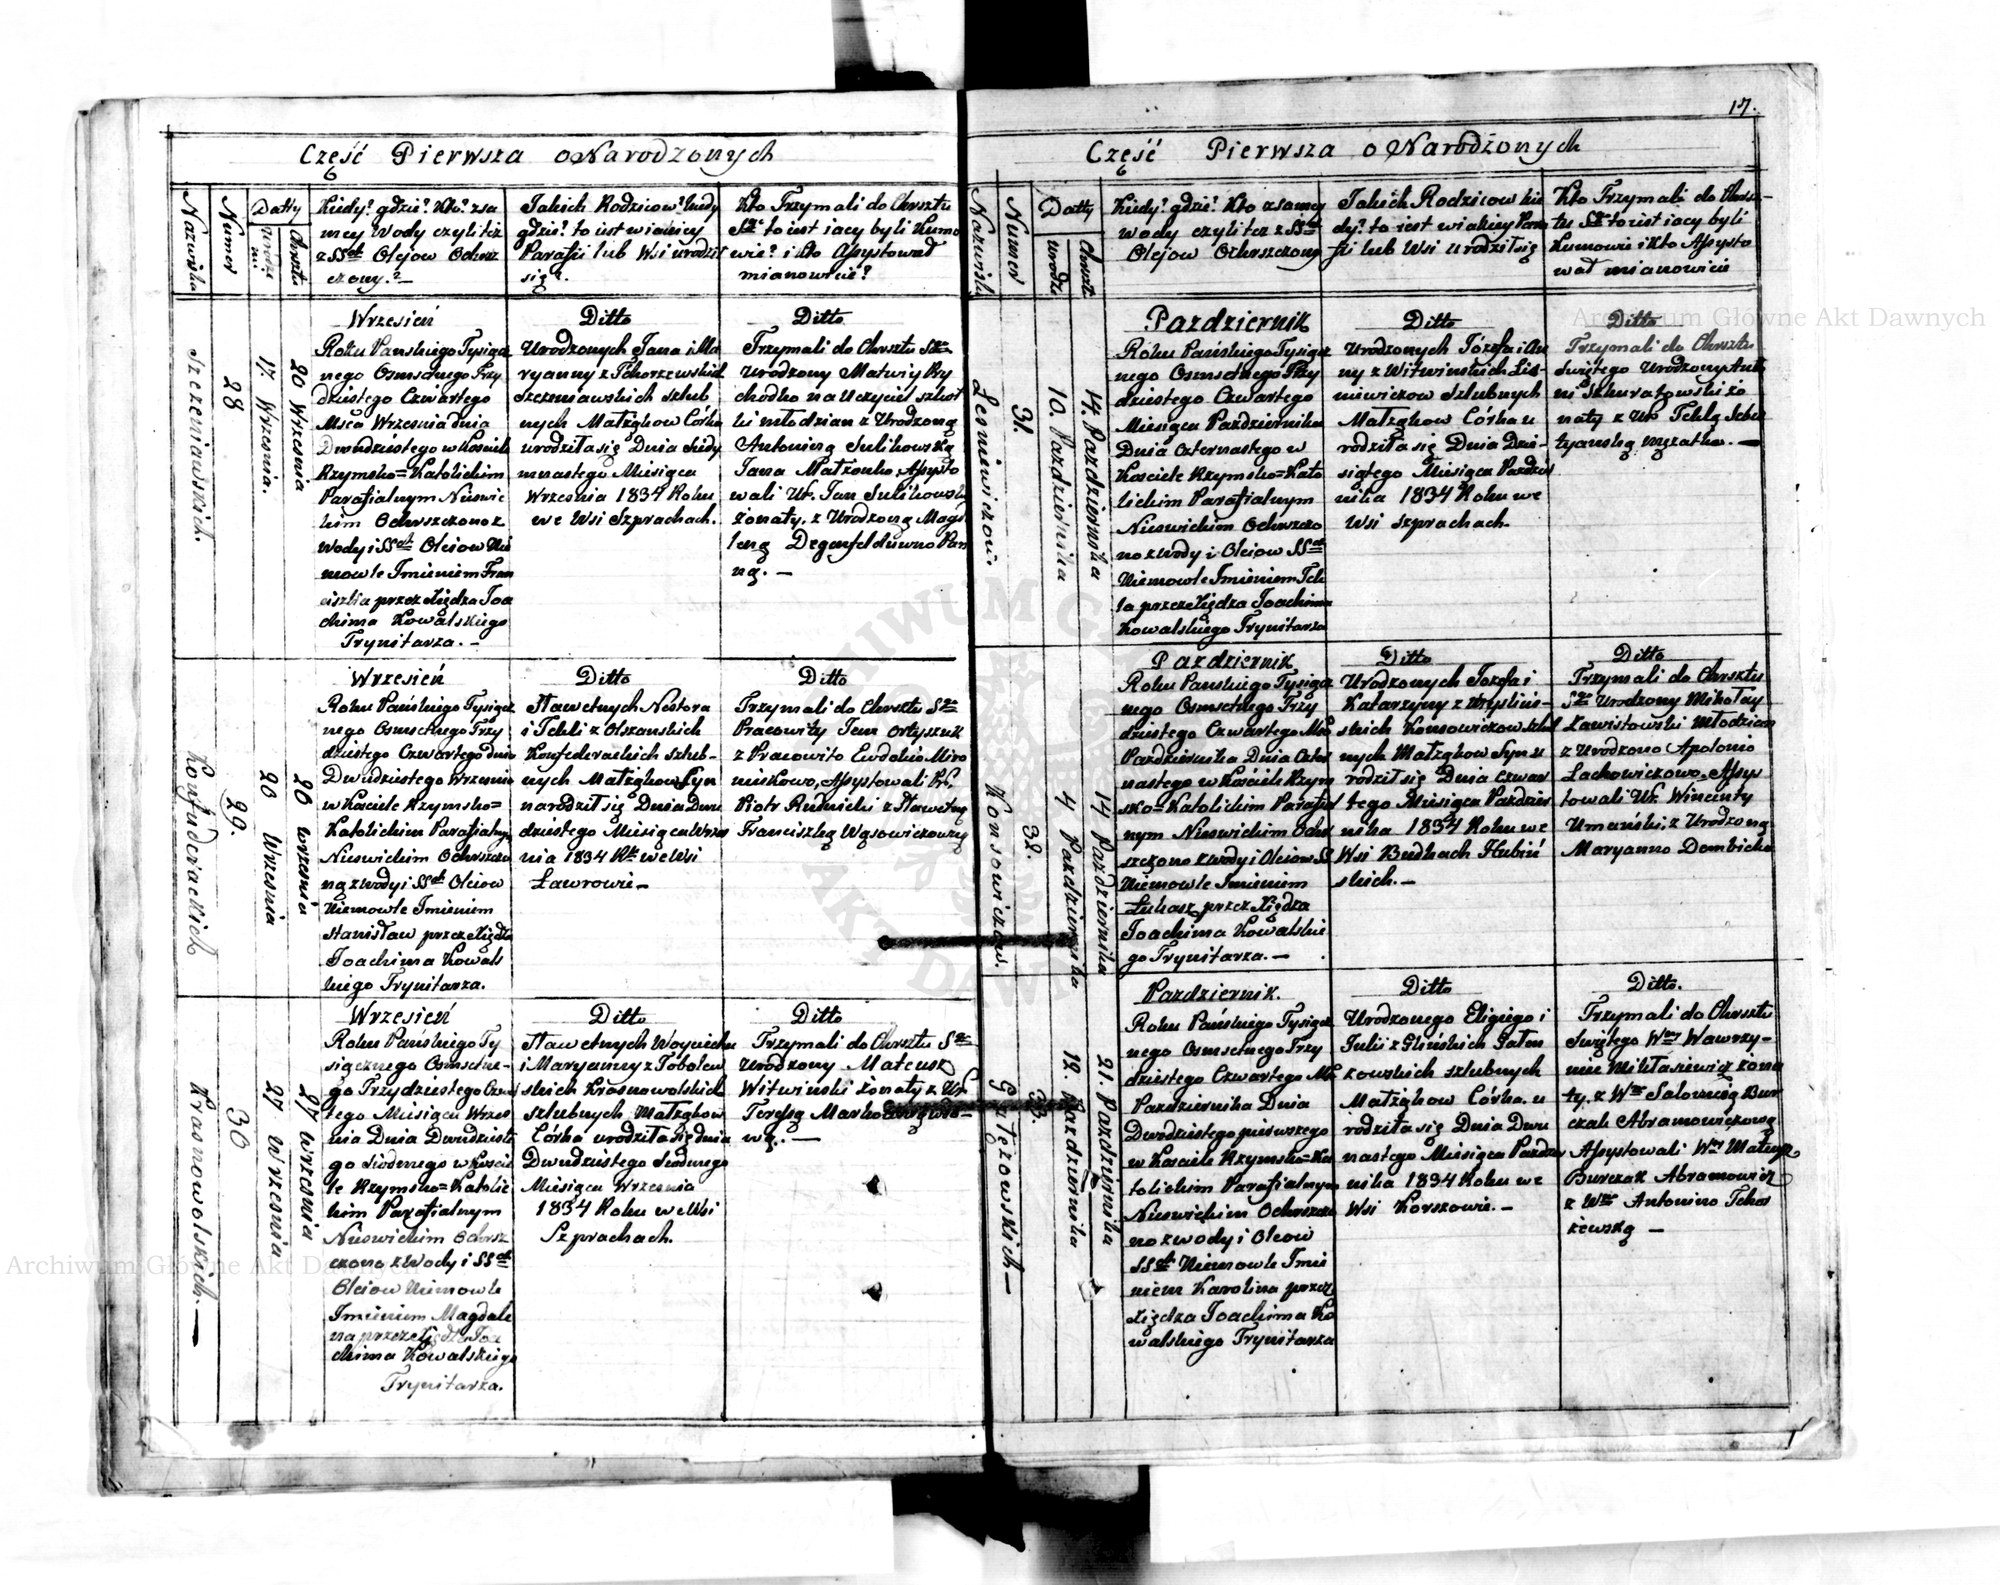 17.
Część Pierwsza o Narodzonych
Nazwiska
Numer
Datty
urodze
nia
Chrztu
Kiedy? gdzie? Kto? z sa
mey Wody czyli też
z SStch Olejow Ochrz
czony?
Jakich Rodzicow? kiedy
gdzie? to iest w iakiey
Parafii lub Wsi urodził
się?
Kto Trzymali do Chrsztu
Sgo to iest iacy byli Kumo
wie? i kto Assystował
mianowicie?
Szczeniawskich.
28
17. Wrzesnia.
20 Wrzesnia
Wrzesień
Roku Panskiego Tysiącz
nego Osmsetnego Trzy
dziestego Czwartego
Msca Wrzesnia dnia
Dwudziestego w Kosciele
Rzymsko=Katolickim
Parafialnym Nieswic
kim Ochrszczono z
wody i SStch Oleiow Nie
mowle Imieniem Fran
ciszka przez Xiędza Joa
chima Kowalskiego
Trynitarza. —
Ditto
Urodzonych Jana i Ma
ryanny z Tchorzewskich
Szczeniawskich szlub
nych Małżąkow Córka
urodziła się Dnia siedy
mnastego Miesiąca
Wrzesnia 1834 Roku
we Wsi Szprachach.
Ditto
Trzymali do Chrsztu Sgo
Urodzony Matwiy Pry
chodko na Uczyciel szkoł
ki młodzian z Urodzoną
Antoniną Sulikowską
Jana Małżonko, Assysto
wali Ur. Jan Sulikowski
żonaty. z Urodzoną Magda
leną Degenfeldówno Pan
ną. —
Konfederackich
29.
20 Wrzesnia
20 wrzesnia
Wrzesień
Roku Pańskiego Tysiącz
nego Osmsetnego Trzy
dziestego Czwartego dnia
Dwudziestego Wrzesnia
w Kosciele Rzymsko=
Katolickim Parafialnym
Nieswickim Ochrszczo
ną z wody i SStch Oleiow
Niemowle Imieniem
Stanisław przez Xiędza
Joachima Kowals
kiego Trynitarza.
Ditto
Sławetnych Nestora
i Tekli z Olszanskich
Konfederackich szlub-
nych Małżąkow Syn
narodził się Dnia Dwu
dziestego Miesiąca Wrzes
nia 1834 Rku we Wsi
Ławrowie —
Ditto
Trzymali do Chrsztu Sgo
Pracowity Jan Ortyszuk
z Pracowito Ewdokio Miro
niukowo, Assystowali Wr.
Piotr Rudnicki z Sławetną
Franciszką Wąsowiczowną
Krasnowolskich. —
30
27 Wrzesnia
27 Wrzesnia
Wrzesień
Roku Panskiego Ty
siącznego Osmsetne-
go Trzydziestego Czwar
tego Miesiąca Wrzes
nia Dnia Dwudzieste
go Siodmego w Koscie
le Rzymsko=Katolic
kim Parafialnym
Nieswickim Ochrsz
czono z Wody i SStch
Oleiow Niemowle
Imieniem Magdale
na przez Xiędza Joa
chima Kowalskiego
Trynitarza.
Ditto
Sławetnych Woyciecha
i Maryanny z Sobolew
skich Krasnowolskich
szlubnych Małżąkow
Córka urodziła się dnia
Dwudziestego Siodmego
Miesiąca Wrzesnia
1834 Roku we Wsi
Szprachach.
Ditto
Trzymali do Chrsztu Sgo
Urodzony Mateusz
Witwinski żonaty z Ur.
Teresą
Część Pierwsza o Narodzonych
Nazwiska
Numer
Datty
urodze
Chrzst
Kiedy? gdzie? Kto z samey
wody czyli tez z SStch
Olejow Ochrszczony
Jakich Rodzicow kie
dy? to iest w iakiey Para
fii lub Wsi urodził się
Kto Trzymali do Chrsz-
tu Sgo to iest iacy byli
Kumowie i kto Assysto
wał mianowicie
Lesniewiczow.
31.
10. Pazdziernika
14. Pazdziernika
Pazdziernik
Roku Pańskiego Tysiącz
nego Osmsetnego Trzy
dziestego Czwartego
Miesiąca Pazdziernika
Dnia Czternastego w
Kosciele Rzymsko=Kato
lickim Parafialnym
Nieswickim Ochrszczo
no z wody i Oleiow SStch
Niemowle Imieniem Tek
la przez Xiędza Joachima
Kowalskiego Trynitarza
Ditto
Urodzonych Józefa i An
ny z Witwinskich Les-
niewiczow szlubnych
Małżąkow Córka u
rodziła się Dnia Dzie-
siątego Miesiąca Pazdzier
nika 1834 Roku we
Wsi Szprachach.
Ditto
Trzymali do Chrsztu
Swiętego Urodzony Anto
ni Skuratowski żo
naty z Ur. Teklą Seba
tyanską mężatka. —
Konsowiczow.
32.
4 Pazdziernika
14 Pazdziernika
Pazdziernik
Roku Panskiego Tysiącz
nego Osmsetnego Trzy
dziestego Czwartego Mca
Pazdziernika Dnia Czter
nastego w Kościele Rzym
sko=Katolickim Parafial
nym Nieswickim Ochr
szczono z wody i Oleiow SS
Niemowle Imieniem
Łukasz przez Xiędza
Joachima Kowalskie
go Trynitarza. —
Ditto
Urodzonych Jozefa i
Katarzyny z Wryśliń-
skich Konsowiczow szlub
nych Małżąkow Syn u
rodził się Dnia Czwar
tego Miesiąca Pazdzier
nika 1834 Roku we
Wsi Budkach Hubiń
skich. —
Ditto
Trzymali do Chrsztu
Sgo Urodzony Mikołay
Ławistowski Młodzian
z Urodzono Apolonio
Lachowiczowo, Assys
towali Ur. Wincenty
Umański, z Urodzoną
Maryanno Dombicko
Gutężowskich —
33.
12. Pazdziernika
21. Pazdziernika
Pazdziernik.
Roku Pańskiego Tysiącz
nego Osmsetnego Trzy
dziestego Czwartego Mca
Pazdziernika Dnia
Dwodziestego pierwszego
w Kosciele Rzymsko=Ka
tolickim Parafialnym
Nieswickim Ochrszczo
no z wody i Oleow
SStch Niemowle Imie
niem Karolina przez
Xiędza Joachima Ko
walskiego Trynitarza
Ditto
Urodzonego Eligiego i
Julii z Glińskich
szlubnych
Małżąkow Córka u
rodziła się Dnia Dwu
nastego Miesiąca Pazdzier
nika 1834 Roku we
Wsi Korszowie. —
Ditto.
Trzymali do Chrsztu
Swiętego Wny Wawrzy-
niec Mikłasiewicz żona
ty. z Wną Salomeią Bur
czak Abramowiczową
Assystowali Wny Mateusz
Burczak Abramowicz
z Wną Antonino Tchor
zewską —
Archiwum Główne Akt Dawnych
Archiwum Główne Akt Dawnych